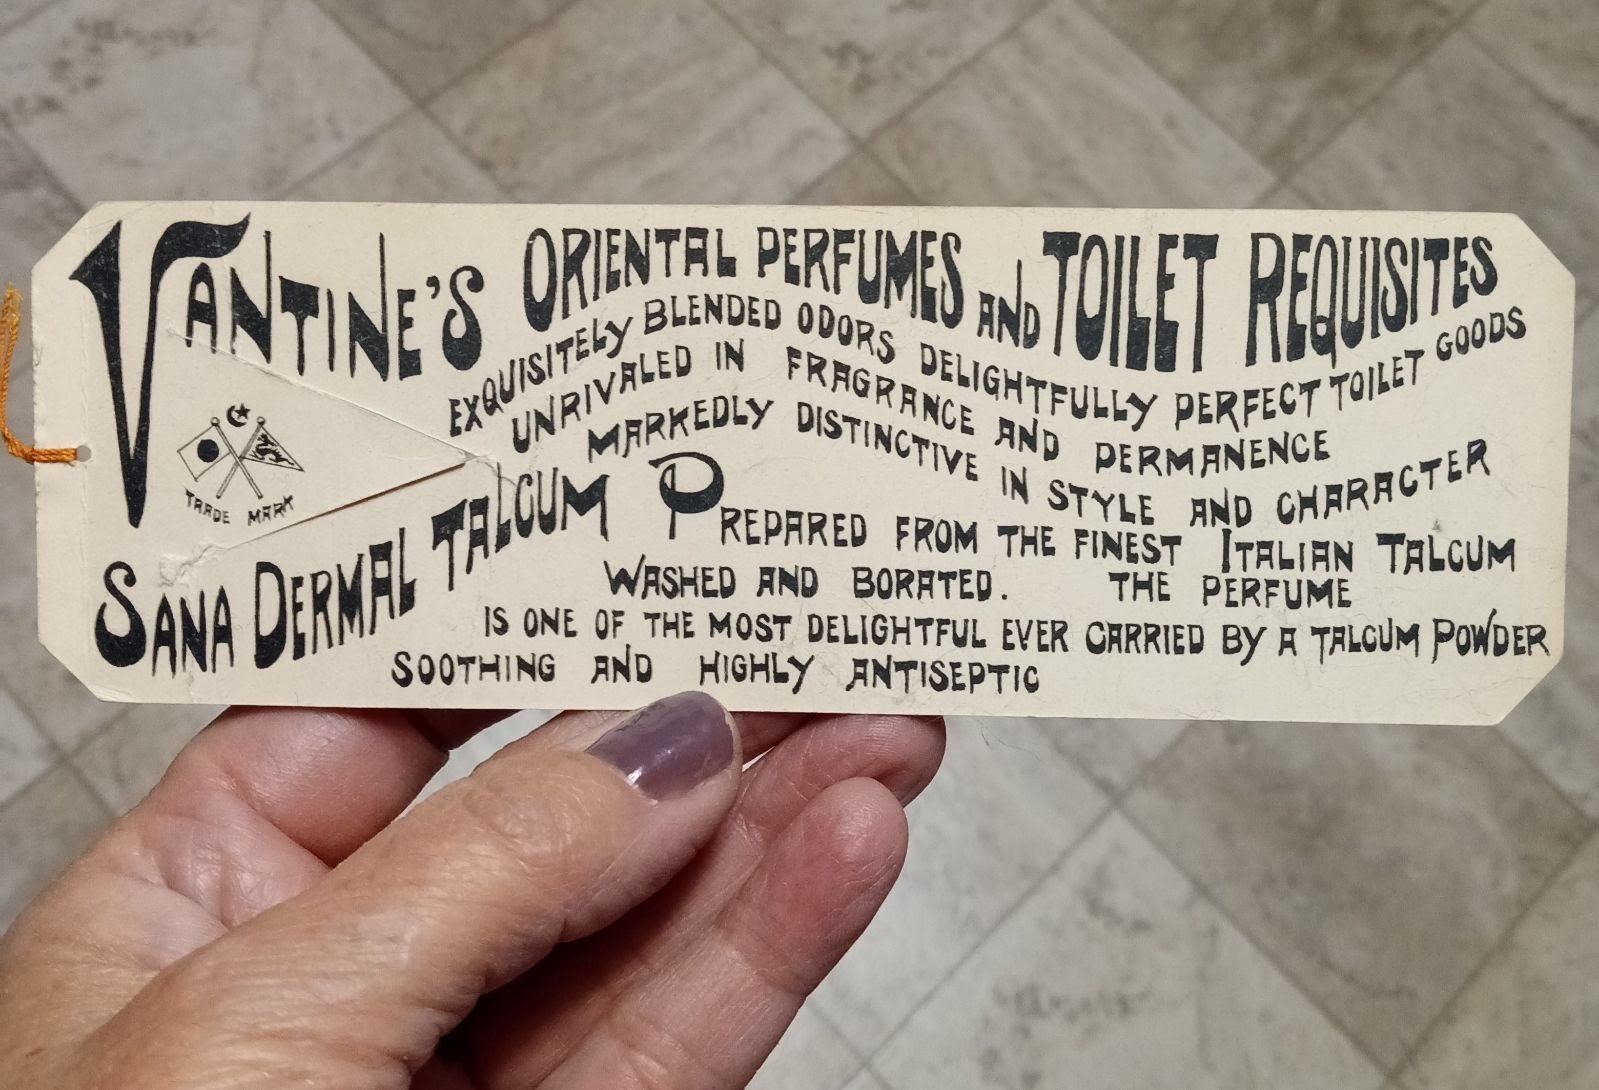 VANTINE'S ORIENTAL PERFUMES AND TOILET REQUISITES
EXQUISITELY BLENDED ODORS DELIGHTFULLY PERFECT TOILET GOODS
UNRIVALED IN FRAGRANCE AND PERMANENCE
MARKEDLY DISTINCTIVE IN STYLE AND CHARACTER
TRADE MARK
SANA DERMAL TALCUM PREPARED FROM THE FINEST ITALIAN TALCUM
WASHED AND BORATED. THE PERFUME
IS ONE OF THE MOST DELIGHTFUL EVER CARRIED BY A TALCUM POWDER
SOOTHING AND HIGHLY ANTISEPTIC